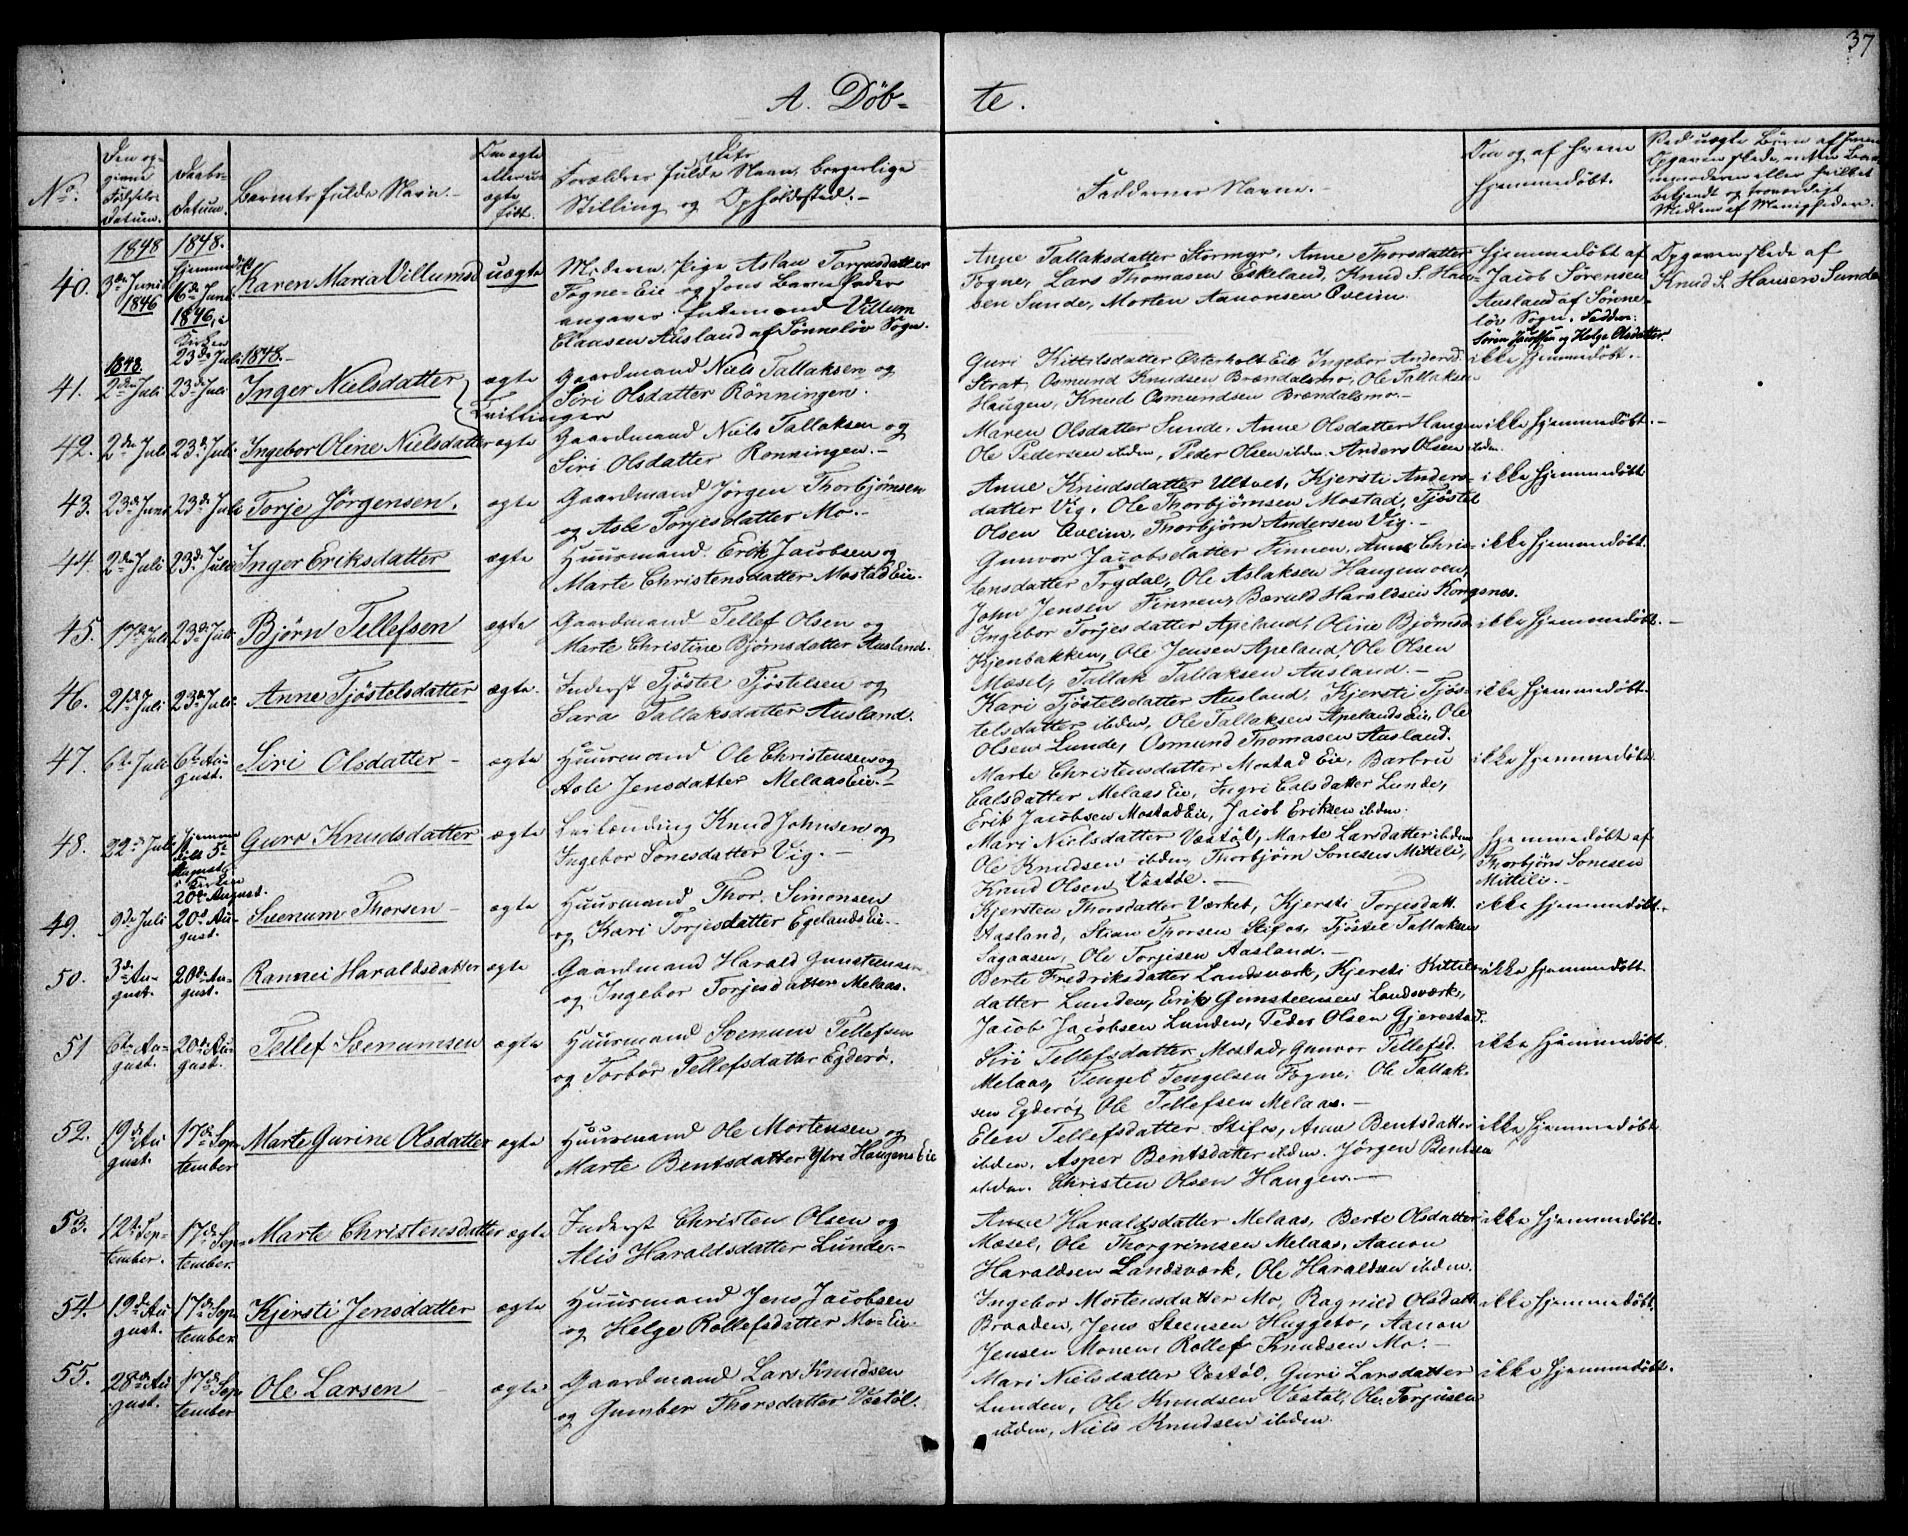 37
A. Døb-
te.
No.
Den op-
givne
Fødsels-
Datum.
Daabs-
Datum.
Barnets fulde Navn.
Om ægte
eller u-
ægte
født.
Forældres fulde Navn, borgerlige
Stilling og Opholdssted.
Faddernes Navne.
Om og af hvem
hjemmedøbt.
Ved uægte Børn af hvem
Opgaven skede, enten Barne-
moderen eller hvilket
bekjendt og troværdigt
Medlem af Menigheden.
40.
1848
3de Juni
1846
1848.
hjemmedøbt
16de Juni
1846, i
Kirken
23de Juli 1848.
Karen Maria Villumsd
uægte
Moderen, Pige Aslau Torjusdatter
Fogne-Eie og som Barnefader
angaves Enkemand Villum
Clausen Ausland af Sønneløv Sogn.
Anne Tallaksdatter Stormyr, Anne Thorsdatter
Fogne, Lars Thomasen Eskeland, Knud S. Han-
sen Sunde, Morten Aanonsen Qveim.
Hjemmedøbt af
Jacob Sørensen
Ausland af Sønne-
løv Sogn. Fadder:
Søren Jacobsen og Helge Olsdatter.
Opgaven skede af
Knud S. Hansen Sunde
41.
1848.
2den Juli
23de Juli
Inger Nielsdatter
ægte
Tvillinger
Gaardmand Niels Tallaksen og
Siri Olsdatter Rønningen.
Guri Kittilsdatter Østerholt Eie, Ingebor Andersd.
Strat, Osmund Knudsen Brændalsmo, Ole Tallaksen
Haugen, Knud Osmundsen Brændalsmo.
ikke hjemmedøbt.
42.
2den Juli
23de Juli
Ingebor Oline Nielsdatter
ægte
Gaardmand Niels Tallaksen og
Siri Olsdatter Rønningen.
Maren Olsdatter Sunde, Anne Olsdatter Haugen
Ole Pedersen ibden, Peder Olsen ibden. Anders Olsen ibden.
ikke hjemmedøbt.
43.
23de Juni
23de Juli
Torje Jörgensen.
ægte
Gaardmand Jörgen Thorbjørnsen
og Asle Torjesdatter Mo.
Anne Knudsdatter Ultvet, Kjersti Anders-
datter Vig, Ole Thorbjørnsen Mostad, Tjöstel
Olsen Qveim, Thorbjørn Andersen Vig.
ikke hjemmedøbt
44.
2den Juli
23de Juli
Inger Eriksdatter
ægte
Huusmand Erik Jacobsen og
Marte Christensdatter Mostad Eie.
Gunvor Jacobsdatter Finnen, Anne Chris-
tensdatter Trydal, Ole Aslaksen Haugemoen,
John Jensen Finnen, Bæruld Haraldsen Kongsnes.
ikke hjemmedøbt.
45.
17de Juli
23de Juli
Bjørn Tellefsen
ægte
Gaardmand Tellef Olsen og
Marte Christine Bjørnsdatter Ausland.
Ingebor Torjesdatter Apeland, Oline Bjørnsd
Kjenbakken, Ole Jensen Apeland, Ole Olsen
Mæsel, Tallak Tallaksen Ausland.
ikke hjemmedøbt.
46.
21de Juli
23de Juli
Anne Tjöstelsdatter
ægte.
Inderst Tjöstel Tjöstelsen og
Sara Tallaksdatter Ausland.
Kari Tjöstelsdatter Ausland, Kjersti Tjös-
telsdatter ibden, Ole Tallaksen Apelands Eie, Ole
Olsen Lunde, Osmund Thomasen Ausland.
ikke hjemmedøbt.
47.
6te Juli
6te Au-
gust.
Siri Olsdatter
ægte
Huusmand Ole Christensen og
Asle Jensdatter Melaas Eie.
Marte Christensdatter Mostad Eie, Barbru
Calsdatter Melaas Eie, Ingri Calsdatter Lunde,
Erik Jacobsen Mostad Eie, Jacob Eriksen ibden.
ikke hjemmedøbt
48.
22de Juli
Hjemme
5te
August
i Kirken
20de August.
Guro Knudsdatter
ægte
Leilænding Knud Johnsen og
Ingebor Sonesdatter Vig.
Mari Nielsdatter Vestøl, Marte Larsdatter ibden
Ole Knudsen ibden, Thorbjørn Sonesen Mitteli,
Knud Olsen Vestøl.
Hjemmedøbt af
Thorbjørn Sonesen
Mitteli.
49.
9de Juli
20de Au-
gust.
Svenum Thorsen
ægte
Huusmand Thor Simonsen
og Kari Torjesdatter Egelands Eie.
Kjersten Thorsdatter Værket, Kjersti Torjesdatt
Aasland, Stian Thorsen Stifos, Tjöstel Tallaksen
Sagaasen, Ole Torjesen Aasland.
ikke hjemmedøbt.
50.
3de Au-
gust.
20de Au-
gust.
Rannei Haraldsdatter
ægte
Gaardmand Harald Gunstensen
og Ingebor Torjesdatter Melaas.
Berte Fredriksdatter Landsværk, Kjersti Kittils-
datter Lunden, Erik Gunsteensen Landsværk,
Jacob Jacobsen Lunden, Peder Olsen Gjerestad.
ikke hjemmedøbt
51
6te Au-
gust.
20de Au-
gust.
Tellef Svenumsen
ægte
Huusmand Svenum Tellefsen
og Torbor Tellefsdatter Egderø.
Siri Tellefsdatter Mostad, Gunvor Tellefsd.
Melaas, Tengel Tengelsen Fogne, Ole Tallak-
sen Egderø, Ole Tellefsen Melaas.
ikke hjemmedøbt.
52.
19de Au-
gust.
17de Sep-
tember
Marte Gurine Olsdatter
ægte
Huusmand Ole Mortensen og
Marte Bentsdatter Ytre Haugens Eie
Elen Tellefsdatter Stifos, Anne Bentsdatter
ibden. Asper Bentsdatter ibden. Jörgen Bentsen
ibden. Christen Olsen Haugen.
ikke hjemmedøbt
53.
12te Sep-
tember.
17de Sep-
tember.
Marte Christensdatter
ægte
Inderst Christen Olsen og
Alis Haraldsdatter Lunde.
Anne Haraldsdatter Melaas, Berte Olsdatter
Mæsel, Ole Thorgrimsen Melaas, Aanon
Haraldsen Landsværk, Ole Haraldsen ibden.
ikke hjemmedøbt.
54.
19de Au-
gust.
17de Sep-
tember.
Kjersti Jensdatter
ægte
Huusmand Jens Jacobsen
og Helge Rollefsdatter Mo-Eie.
Ingebor Mortensdatter Mo, Ragnild Olsdatt.
Braaden, Jens Steensen Huggeto, Aanon
Jensen Monen, Rollef Knudsen Mo.
ikke hjemmedøbt.
55.
28de Au-
gust.
17de Sep-
tember
Ole Larsen
ægte
Gaardmand Lars Knudsen
og Gumber Thorsdatter Vestöl.
Mari Nielsdatter Vestöl, Guri Larsdatter
Lunden, Ole Knudsen Vestöl, Ole Torjusen
ibden, Niels Knudsen ibden.
ikke hjemmedøbt.